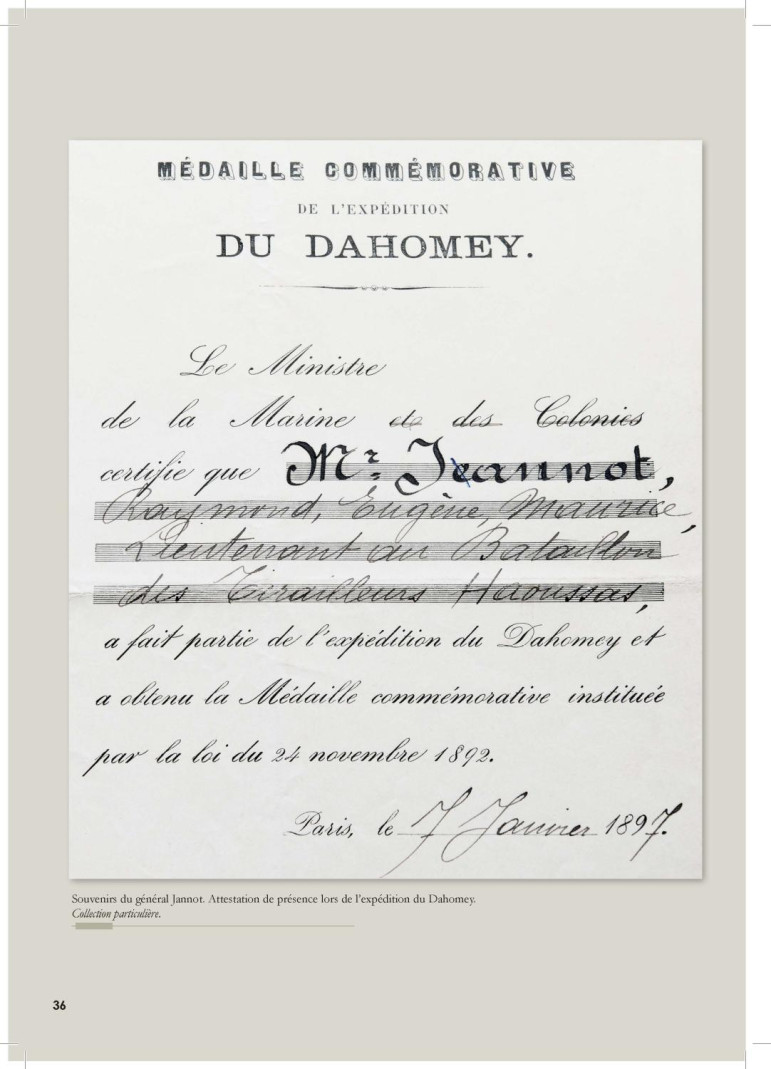 MÉDAILLE COMMÉMORATIVE
DE L'EXPÉDITION
DU DAHOMEY.
Le Ministre
de la Marine et des Colonies
certifie que Mr Jeannot,
Raymond, Eugène, Maurice,
Lieutenant au Bataillon
des Tirailleurs Haoussas,
a fait partie de l'expédition du Dahomey et
a obtenu la Médaille commémorative instituée
par la loi du 24 novembre 1892.
Paris, le 7 Janvier 1897.
Souvenirs du général Jannot. Attestation de présence lors de l'expédition du Dahomey.
Collection particulière.
36